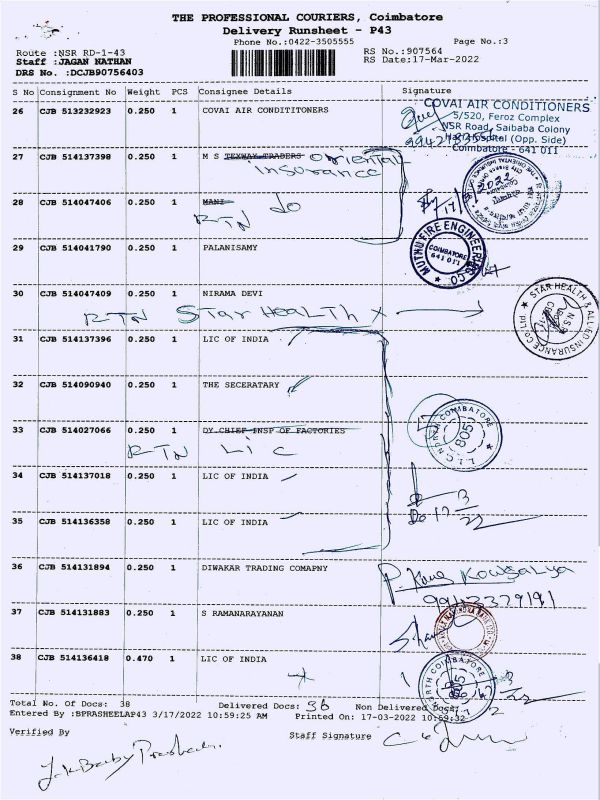 THE PROFESSIONAL COURIERS, Coimbatore
Delivery Runsheet - P43
Phone No.:0422-3505555 Page No.:3
Route :NSR RD-1-43 RS No.:907564
Staff :JAGAN NATHAN RS Date:17-Mar-2022
DRS No. :DCJB90756403
S No Consignment No Weight PCS Consignee Details Signature
26 CJB 513232923 0.250 1 COVAI AIR CONDITITONERS
COVAI AIR CONDITIONERS
5/520, Feroz Complex
NSR Road, Saibaba Colony
Hospital (Opp. Side)
Coimbatore - 641 011
27 CJB 514137398 0.250 1 M S TEXWAY TRADERS oriental
insurance
28 CJB 514047406 0.250 1 MANI do
RTN
29 CJB 514041790 0.250 1 PALANISAMY
MUTHU FIRE ENGINEERING CO
COIMBATORE
641 011
30 CJB 514047409 0.250 1 NIRAMA DEVI
RTN STar HEALTH X
STAR HEALTH & ALLIED INSURANCE CO LTD
31 CJB 514137396 0.250 1 LIC OF INDIA
32 CJB 514090940 0.250 1 THE SECERATARY
33 CJB 514027066 0.250 1 DY CHIEF INSP OF FACTORIES
RTN Lic
COIMBATORE
805
34 CJB 514137018 0.250 1 LIC OF INDIA
35 CJB 514136358 0.250 1 LIC OF INDIA
36 CJB 514131894 0.250 1 DIWAKAR TRADING COMAPNY
Kowsalya
9942379191
37 CJB 514131883 0.250 1 S RAMANARAYANAN
38 CJB 514136418 0.470 1 LIC OF INDIA
COIMBATORE
Total No. Of Docs: 38 Delivered Docs: 36 Non Delivered Docs:
Entered By :BPRASHEELAP43 3/17/2022 10:59:25 AM Printed On: 17-03-2022 10:59:32
Verified By Staff Signature